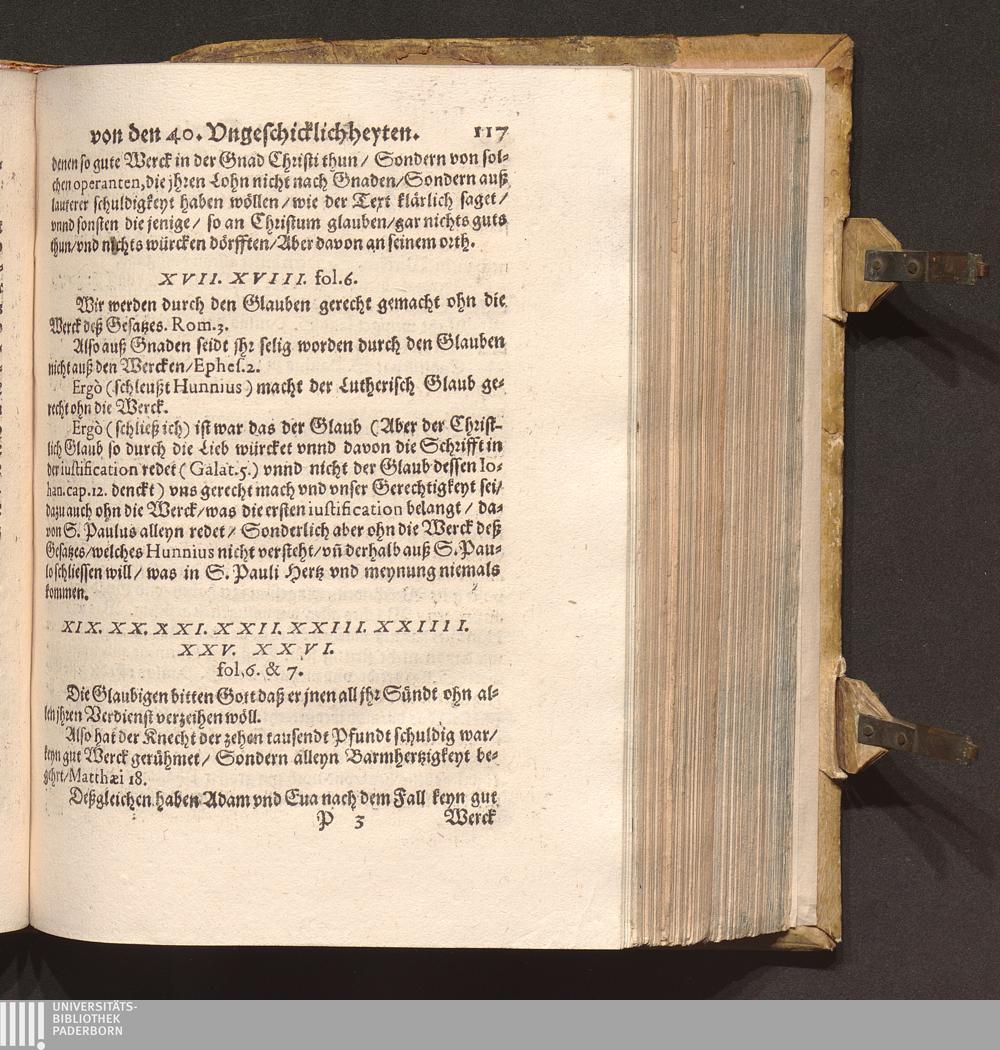 von den 40. Vngeschicklichheyten. 117
denen so gute Werck in der Gnad Christi thun / Sondern von sol-
chen operanten, die jhren Lohn nicht nach Gnaden / Sondern auß
lauterer schuldigkeyt haben wöllen / wie der Text klärlich saget /
vnnd sonsten die jenige / so an Christum glauben / gar nichts guts
thun / vnd nichts würcken dörfften / Aber davon an seinem orth.
XVII. XVIII. fol. 6.
Wir werden durch den Glauben gerecht gemacht ohn die
Werck deß Gesatzes. Rom. 3.
Also auß Gnaden seidt jhr selig worden durch den Glauben
nicht auß den Wercken / Ephes. 2.
Ergò (schleußt Hunnius) macht der Lutherisch Glaub ge-
recht ohn die Werck.
Ergò (schließ ich) ist war das der Glaub (Aber der Christ-
lich Glaub so durch die Lieb würcket vnnd davon die Schrifft in
der iustification redet (Galat. 5.) vnnd nicht der Glaub dessen Io-
han. cap. 12. denckt) vns gerecht mach vnd vnser Gerechtigkeyt sei /
dazu auch ohn die Werck / was die ersten iustification belangt / da-
von S. Paulus alleyn redet / Sonderlich aber ohn die Werck deß
Gesatzes / welches Hunnius nicht versteht / vñ derhalb auß S. Pau-
lo schliessen will / was in S. Pauli Hertz vnd meynung niemals
kommen.
XIX. XX. XXI. XXII. XXIII. XXIIII.
XXV. XXVI.
fol. 6. & 7.
Die Glaubigen bitten Gott daß er jnen all jhr Sündt ohn al-
len jhren Verdienst verzeihen wöll.
Also hat der Knecht der zehen tausendt Pfundt schuldig war /
keyn gut Werck gerühmet / Sondern alleyn Barmhertzigkeyt be-
gehrt / Matthæi 18.
Deßgleichen haben Adam vnd Eua nach dem Fall keyn gut
P 3 Werck
UNIVERSITÄTS-
BIBLIOTHEK
PADERBORN